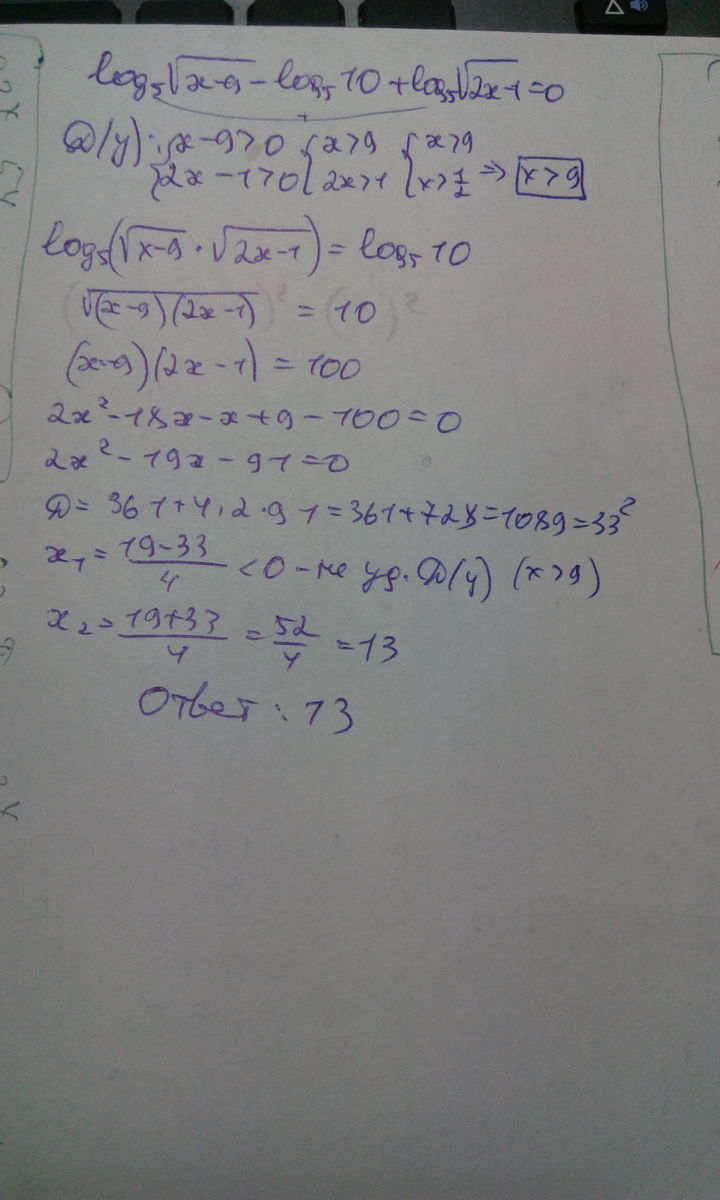 log₅√(x-9) - log₅ 10 + log₅√(2x-1) = 0
D(y): { x-9>0 { x>9 { x>9
{ 2x-1>0 { 2x>1 { x>1/2 => x>9
log₅(√(x-9) · √(2x-1)) = log₅ 10
(√((x-9)(2x-1)))² = (10)²
(x-9)(2x-1) = 100
2x²-18x-x+9-100=0
2x²-19x-91=0
D= 361+4·2·91=361+728=1089=33²
x₁= (19-33)/4 <0 - не уд. D(y) (x>9)
x₂= (19+33)/4 = 52/4 = 13
Ответ: 13